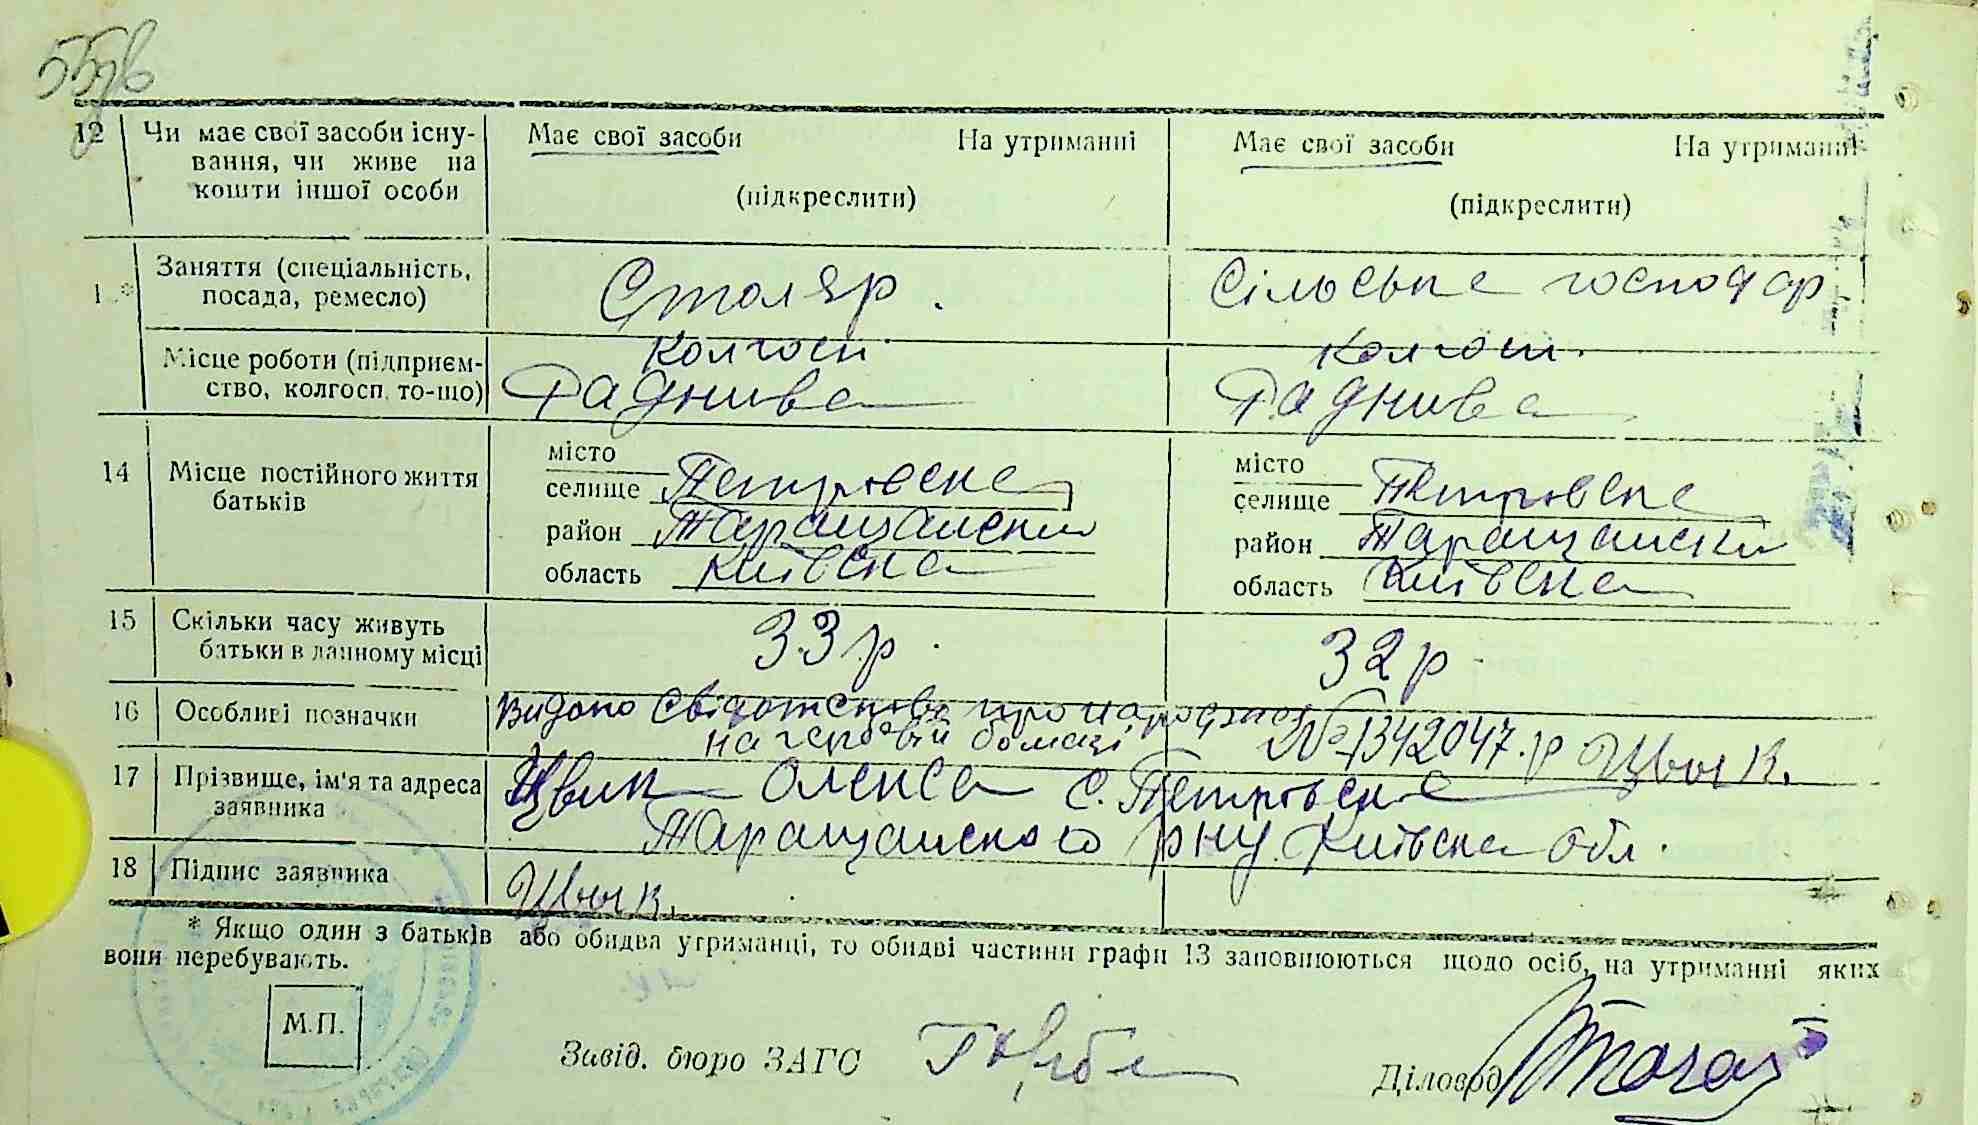 55зв
12 Чи має свої засоби існу- Має свої засоби На утриманні Має свої засоби На утриманні
вання, чи живе на
кошти іншої особи (підкреслити) (підкреслити)
1 * Заняття (спеціальність, Столяр. Сільське господар
посада, ремесло)
Місце роботи (підприєм- колгосп колгосп
ство, колгосп то-що)
14 Місце постійного життя місто місто
батьків селище Петрівське селище Петрівське
район Таращански район Таращански
область Київська область Київська
15 Скільки часу живуть 33 р. 32 р
батьки в данному місці
16 Особливі позначки Видано свідотство про народження
на гербовій бомазі №1342047.р Цвык.
17 Прізвище, ім'я та адреса Цвик Олекса с. Петрівське
заявника Таращанского рну Київська обл.
18 Підпис заявника Цвык.
* Якщо один з батьків або обидва утриманці, то обидві частини графи 13 заповнюються щодо осіб, на утриманні яких
вони перебувають.
М.П.
Завід. бюро ЗАГС
Діловод